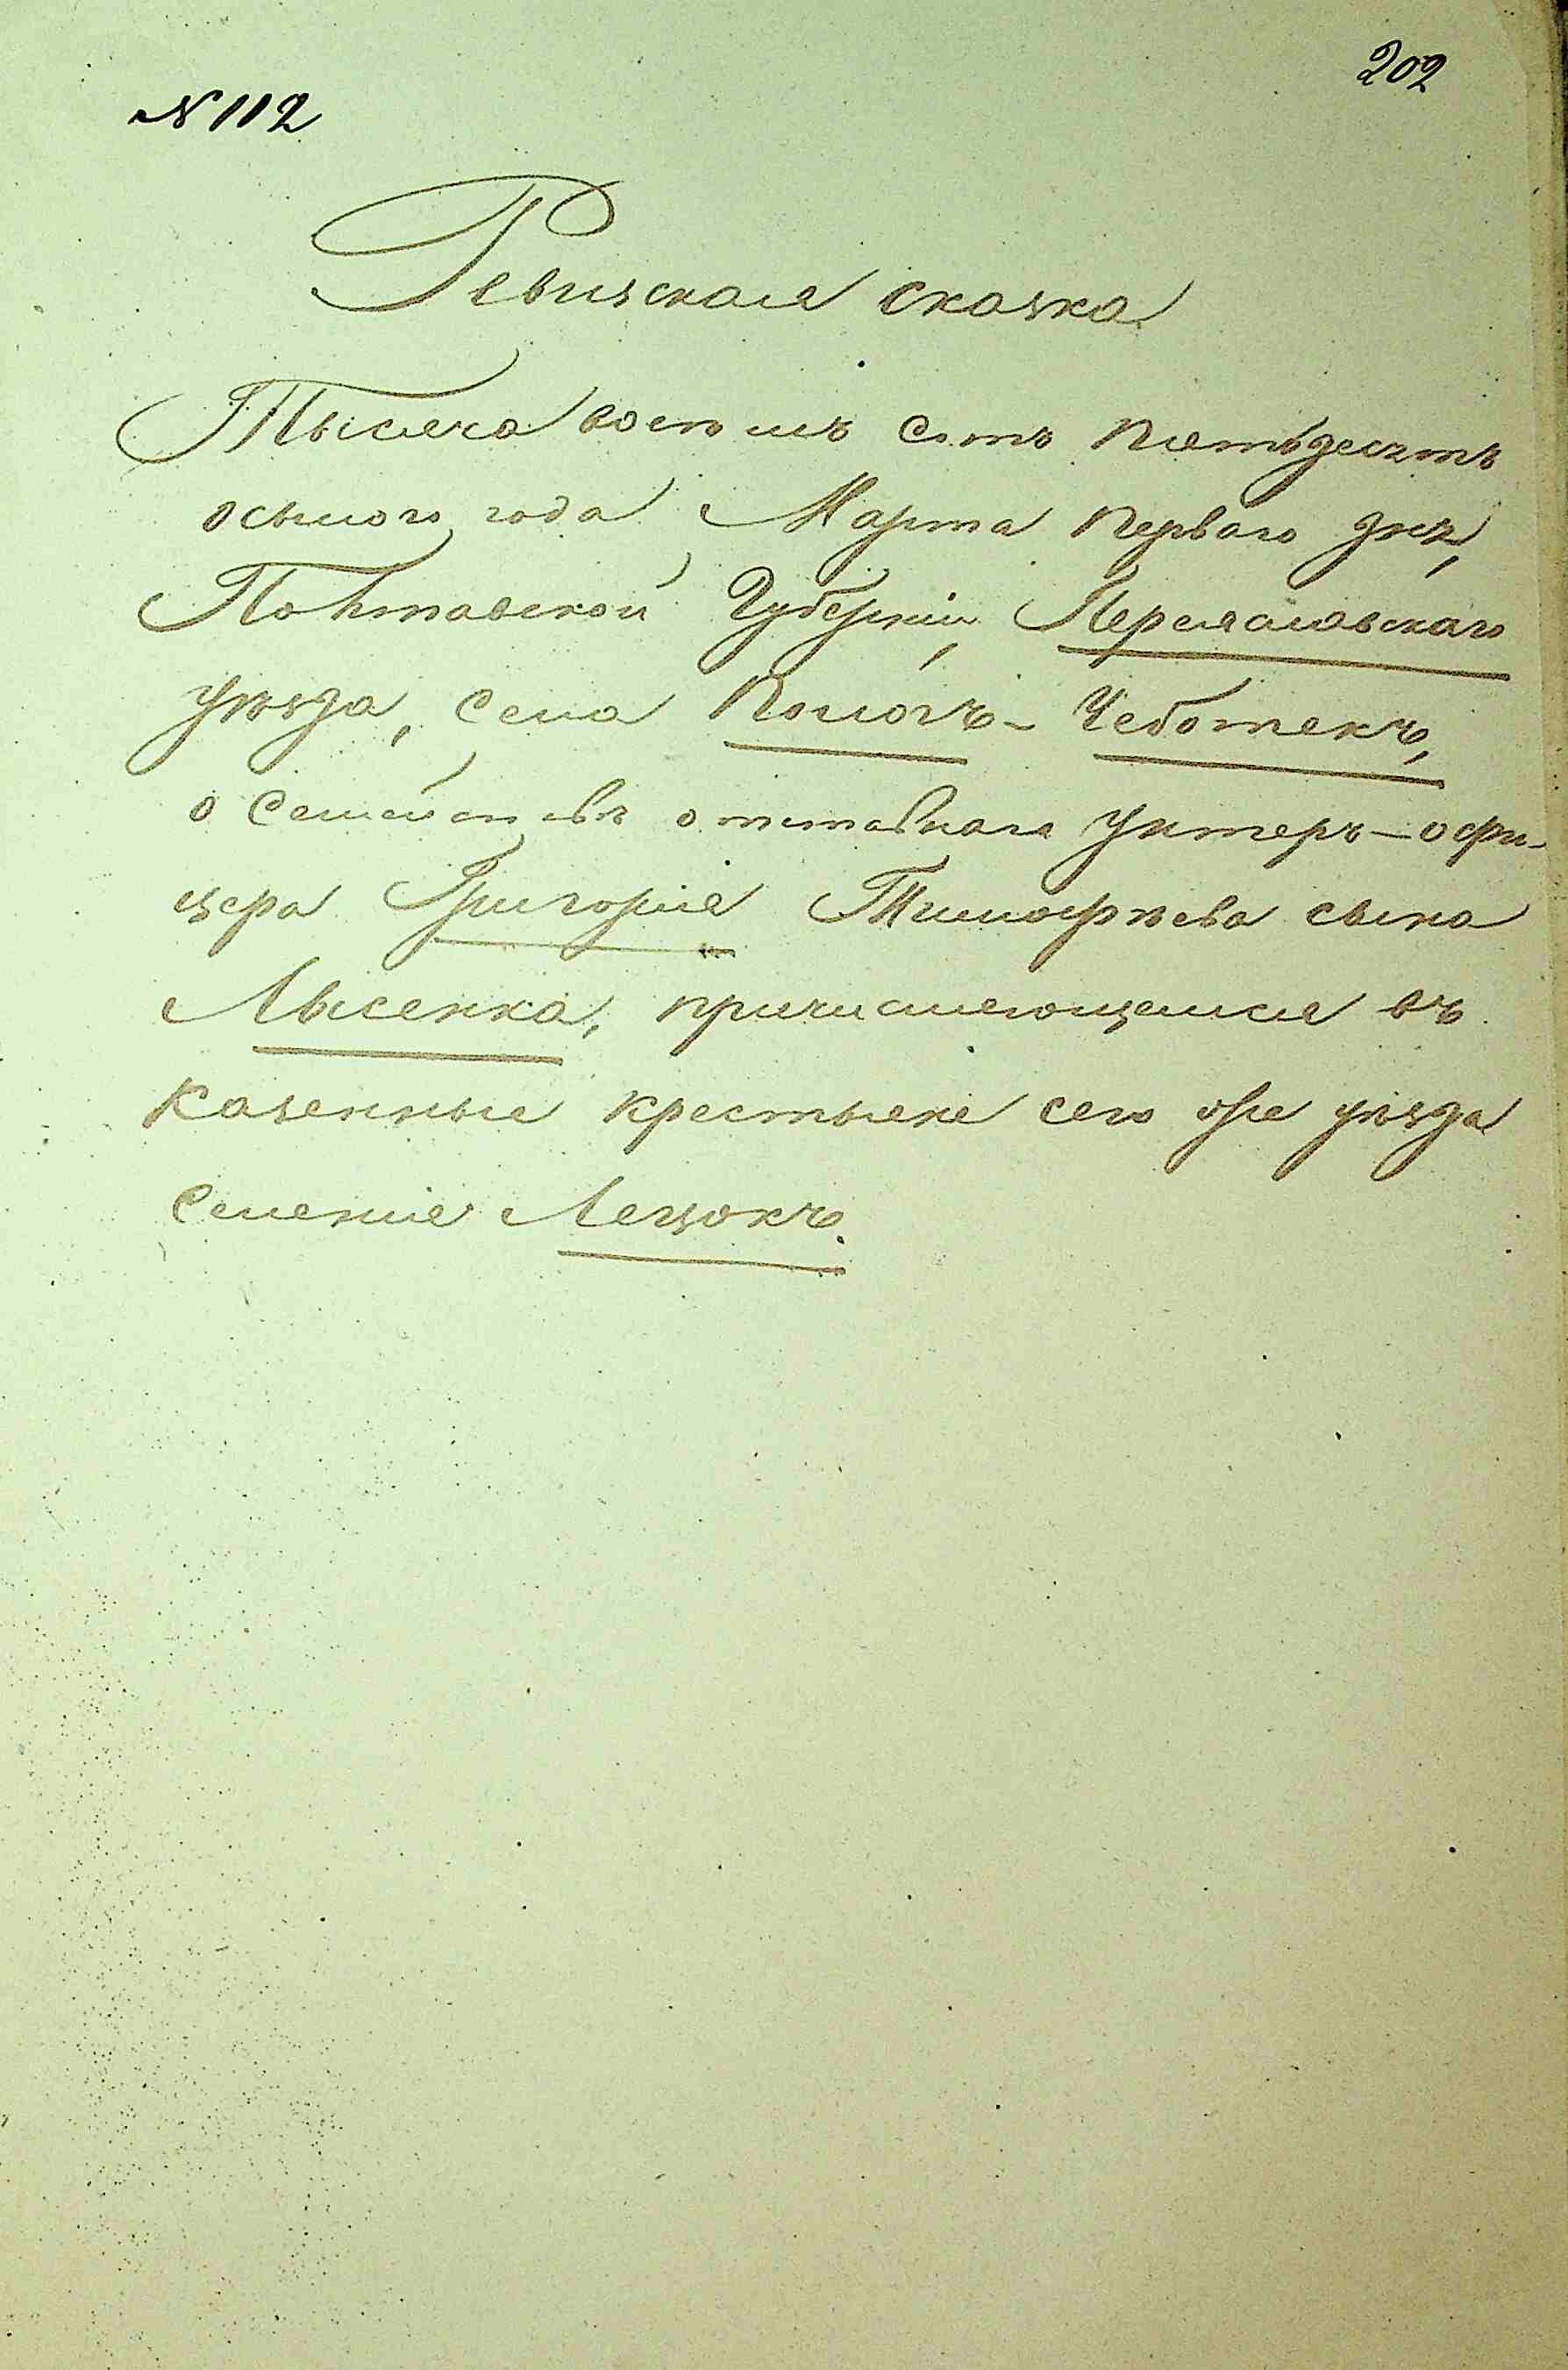 202
N 112
Ревизская сказка
Тысяча восемь сотъ пятьдесятъ
осьмого года Марта перваго дня,
Полтавской Губерніи, Переяславскаго
уѣзда, села Пологъ-Чеботекъ,
о семействѣ отставнаго Унтеръ-офи-
цера Григорія Тимофѣева сына
Лысенка, причисляющемся въ
казенные крестьяне сего же уѣзда
селенія Лецокъ.